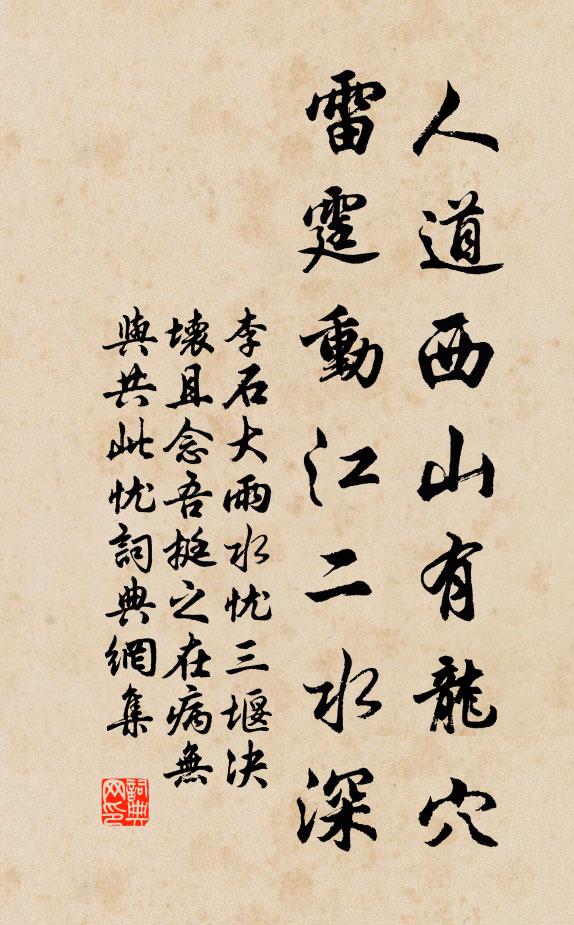 人道西山有龍穴
雷霆動江二水深
李石大雨水忧三堰决
壞且念吾挺之在病無
與共此忧詞典網集
詞典网印